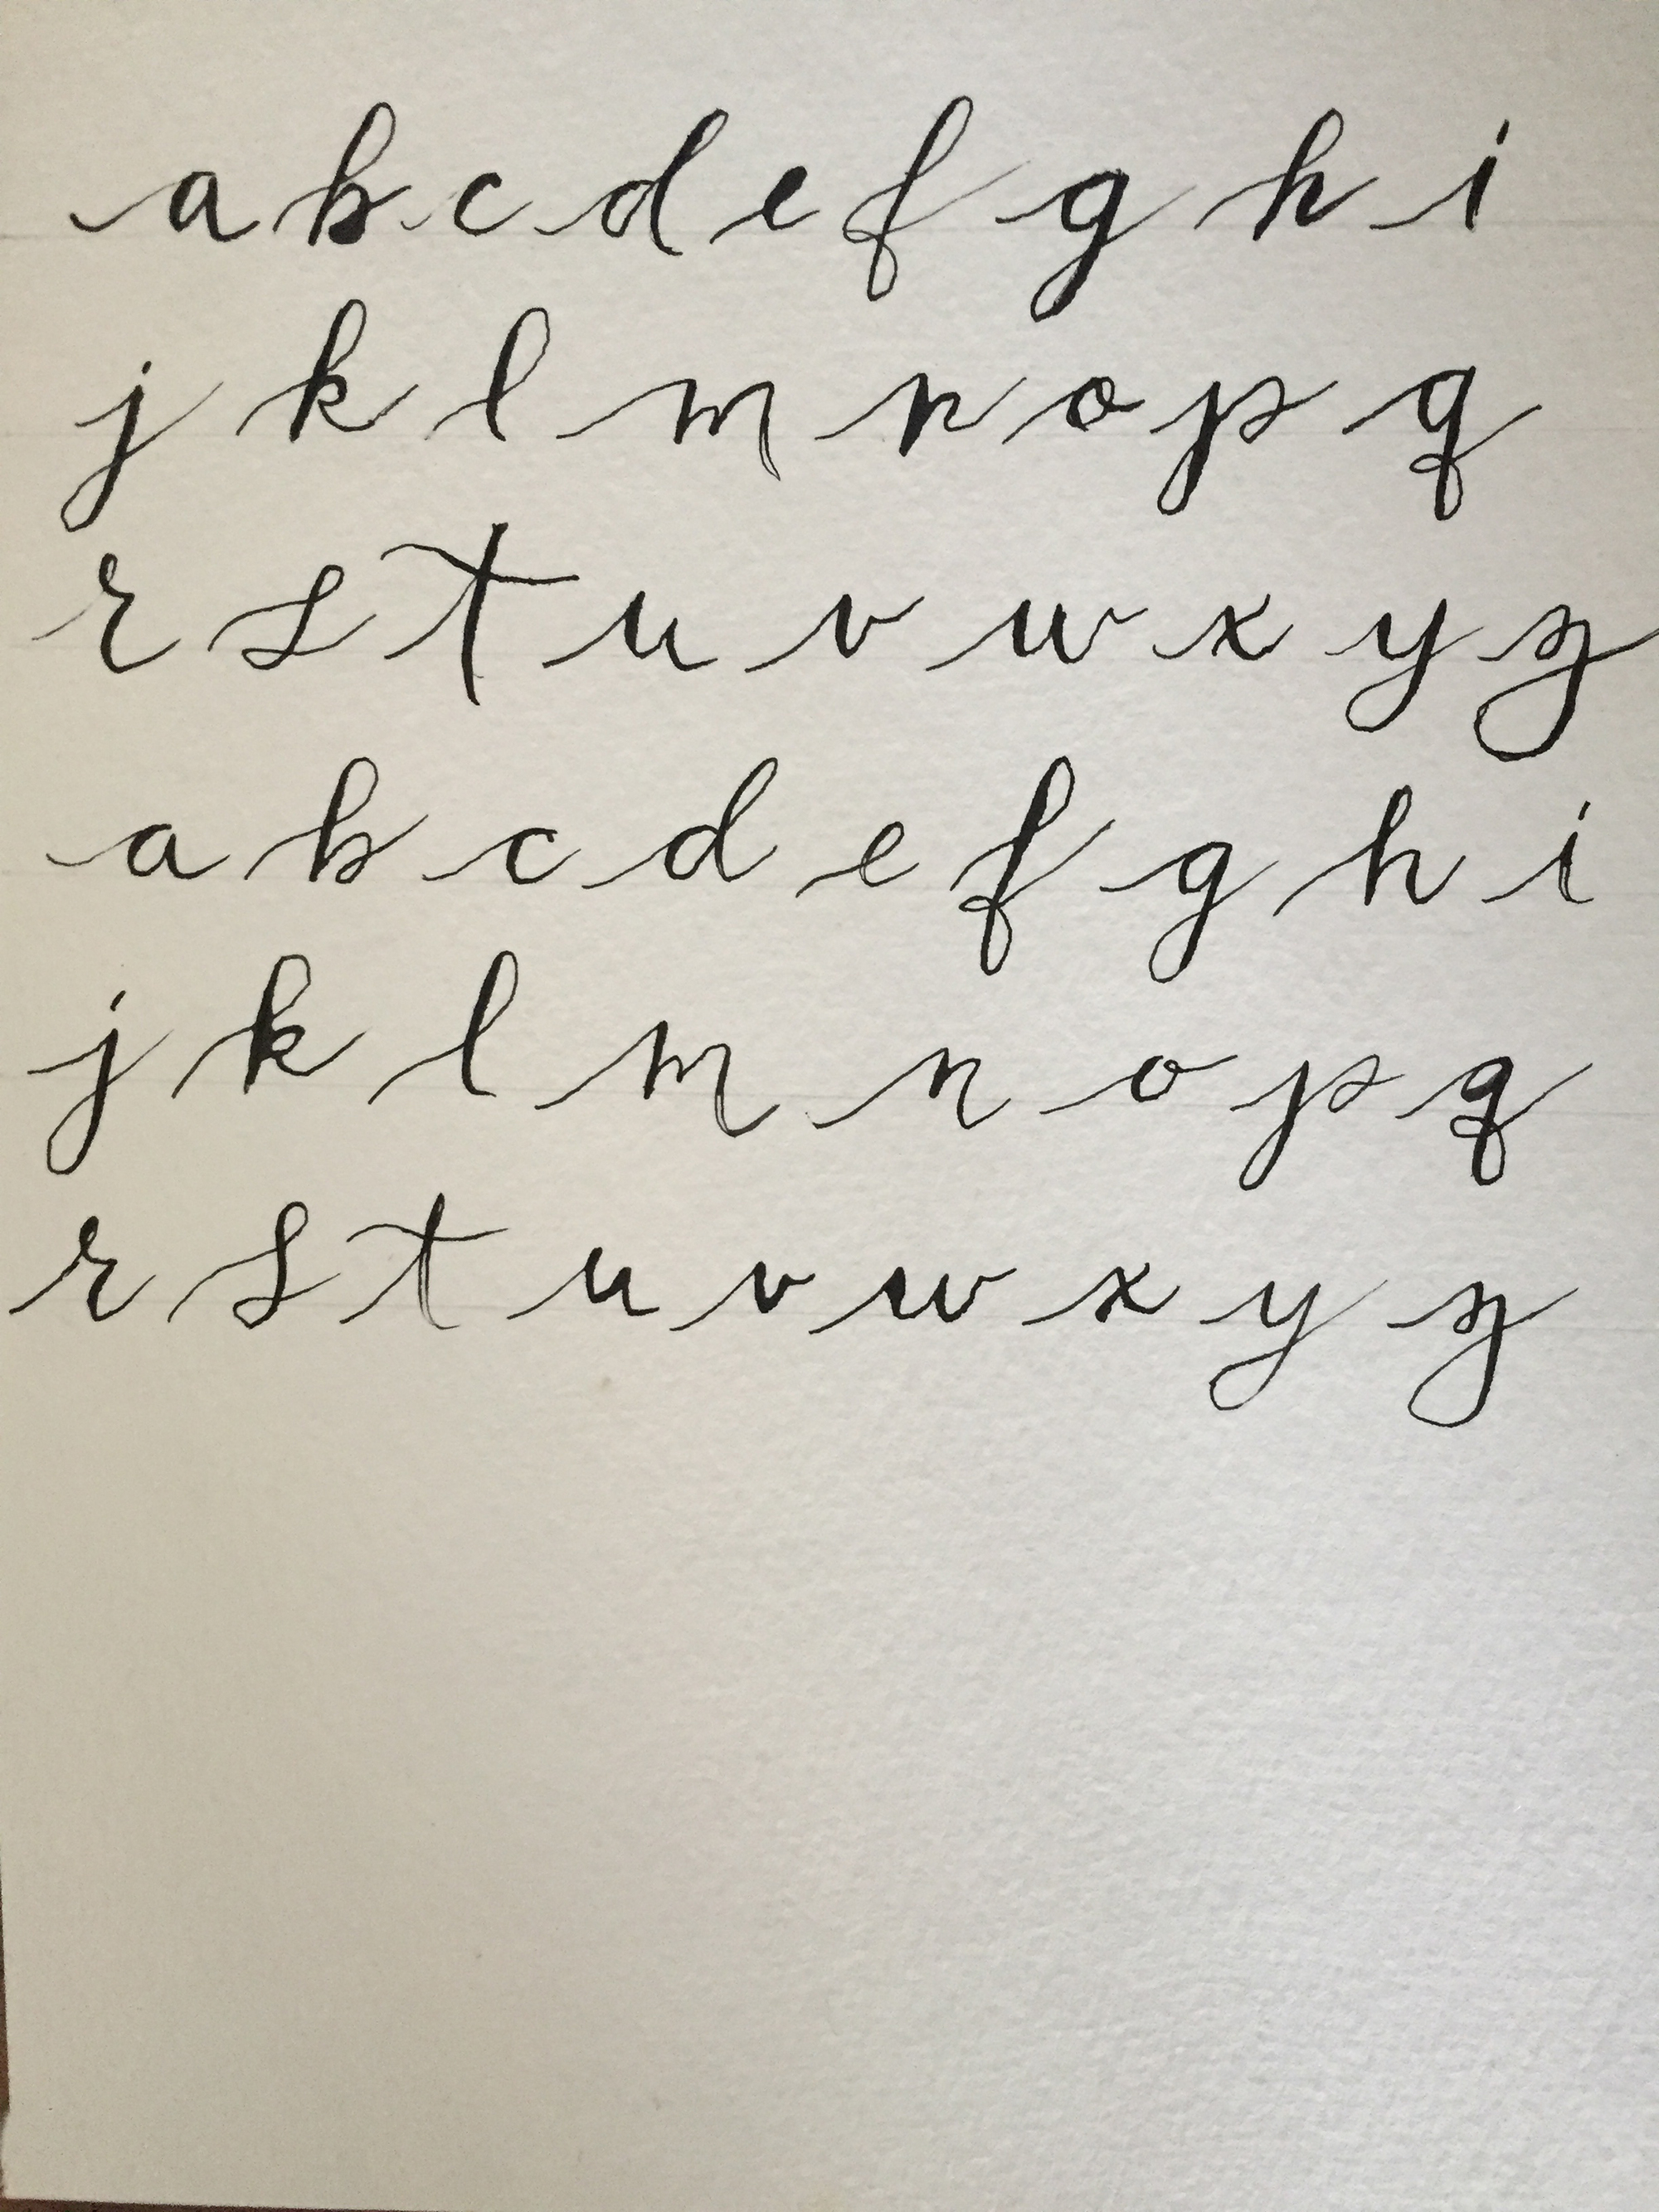 a b c d e f g h i
j k l m n o p q
r s t u v w x y z
a b c d e f g h i
j k l m n o p q
r s t u v w x y z